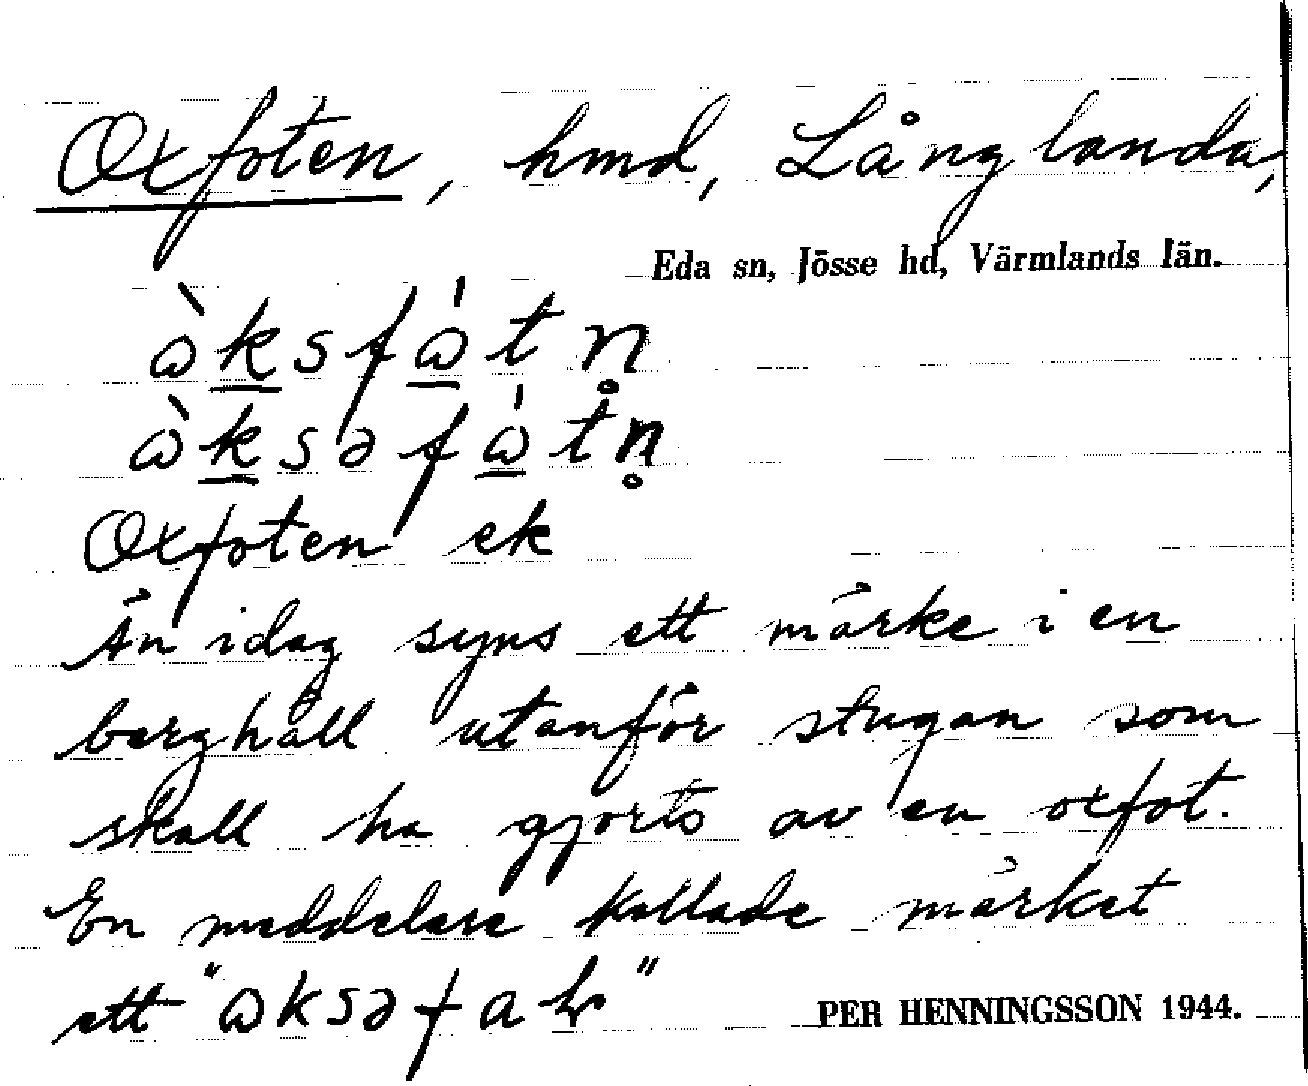 Oxfoten, hmd, Långlanda,
Eda sn, Jösse hd, Värmlands län.
ὼksfώtn̥
ὼksəfώtn̥
Oxfoten ek
Än idag syns ett märke i en
berghäll utanför stugan som
skall ha gjorts av en oxfot.
En meddelare kallade märket
ett "ωksəfar"
PER HENNINGSSON 1944.